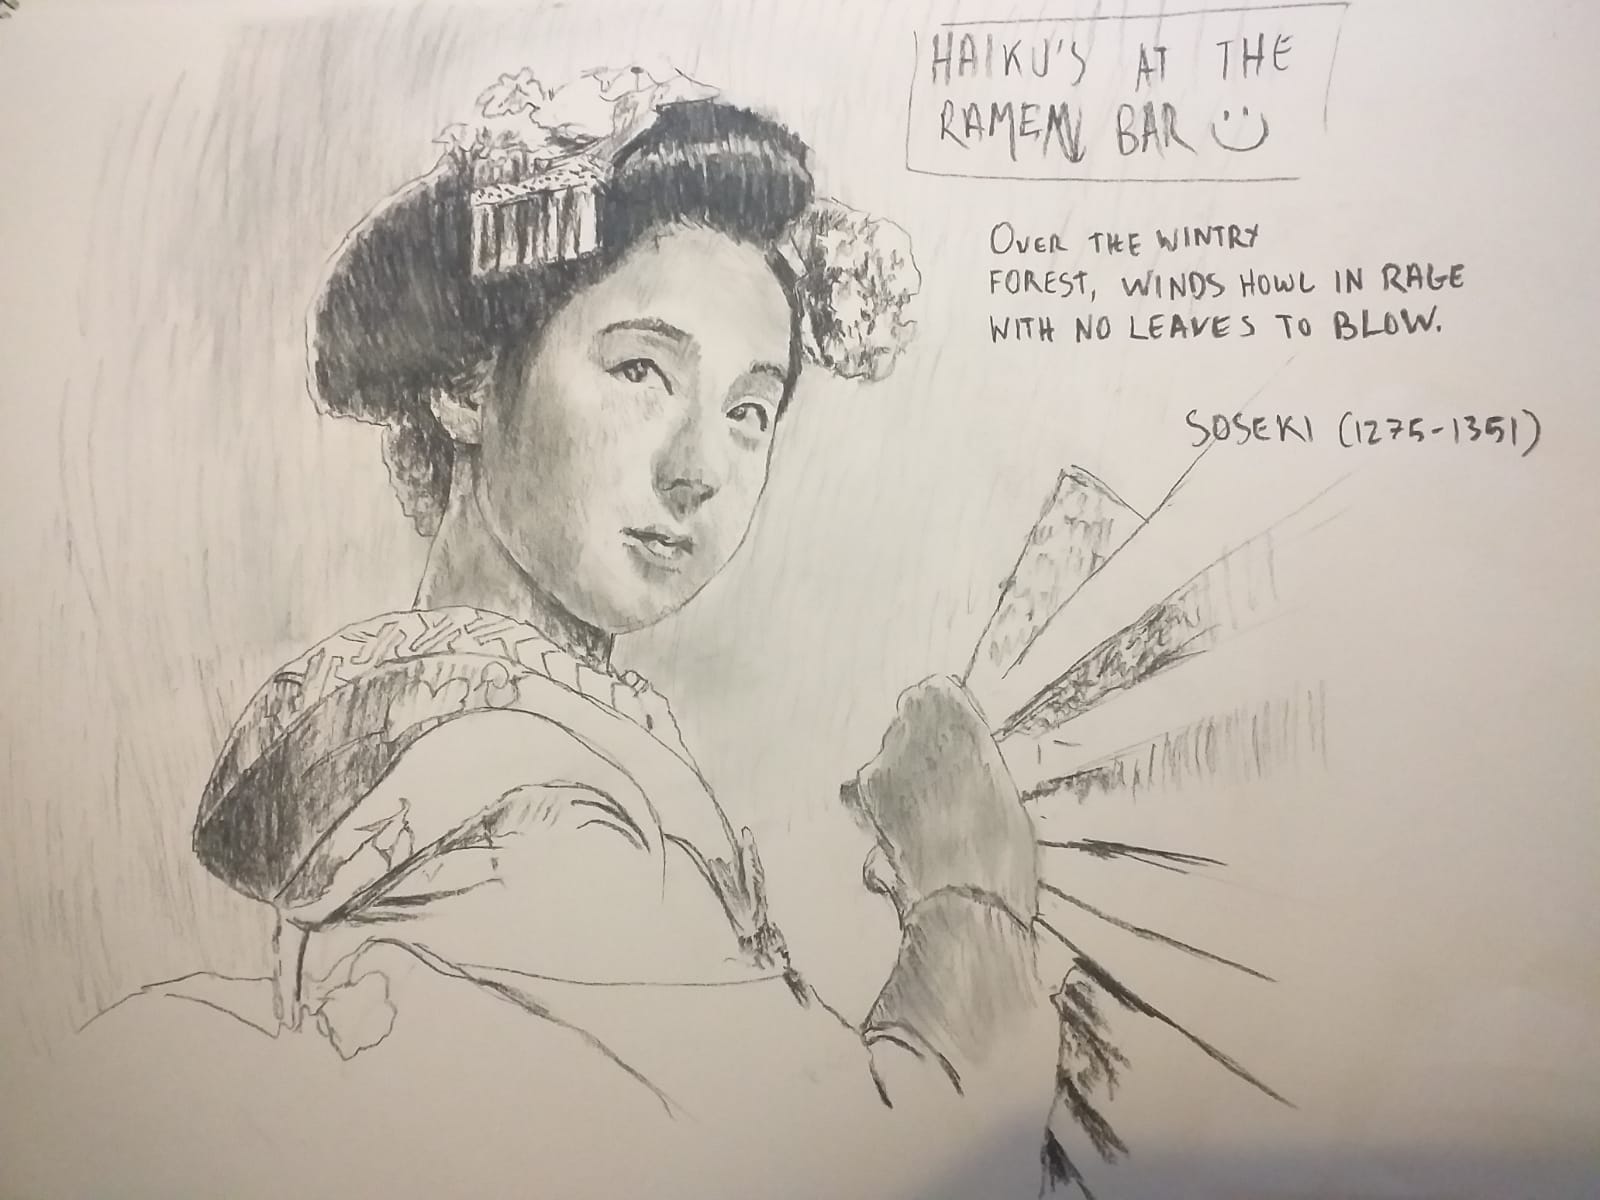 HAIKU'S AT THE
RAMEN BAR
OVER THE WINTRY
FOREST, WINDS HOWL IN RAGE
WITH NO LEAVES TO BLOW.
SOSEKI (1275-1351)